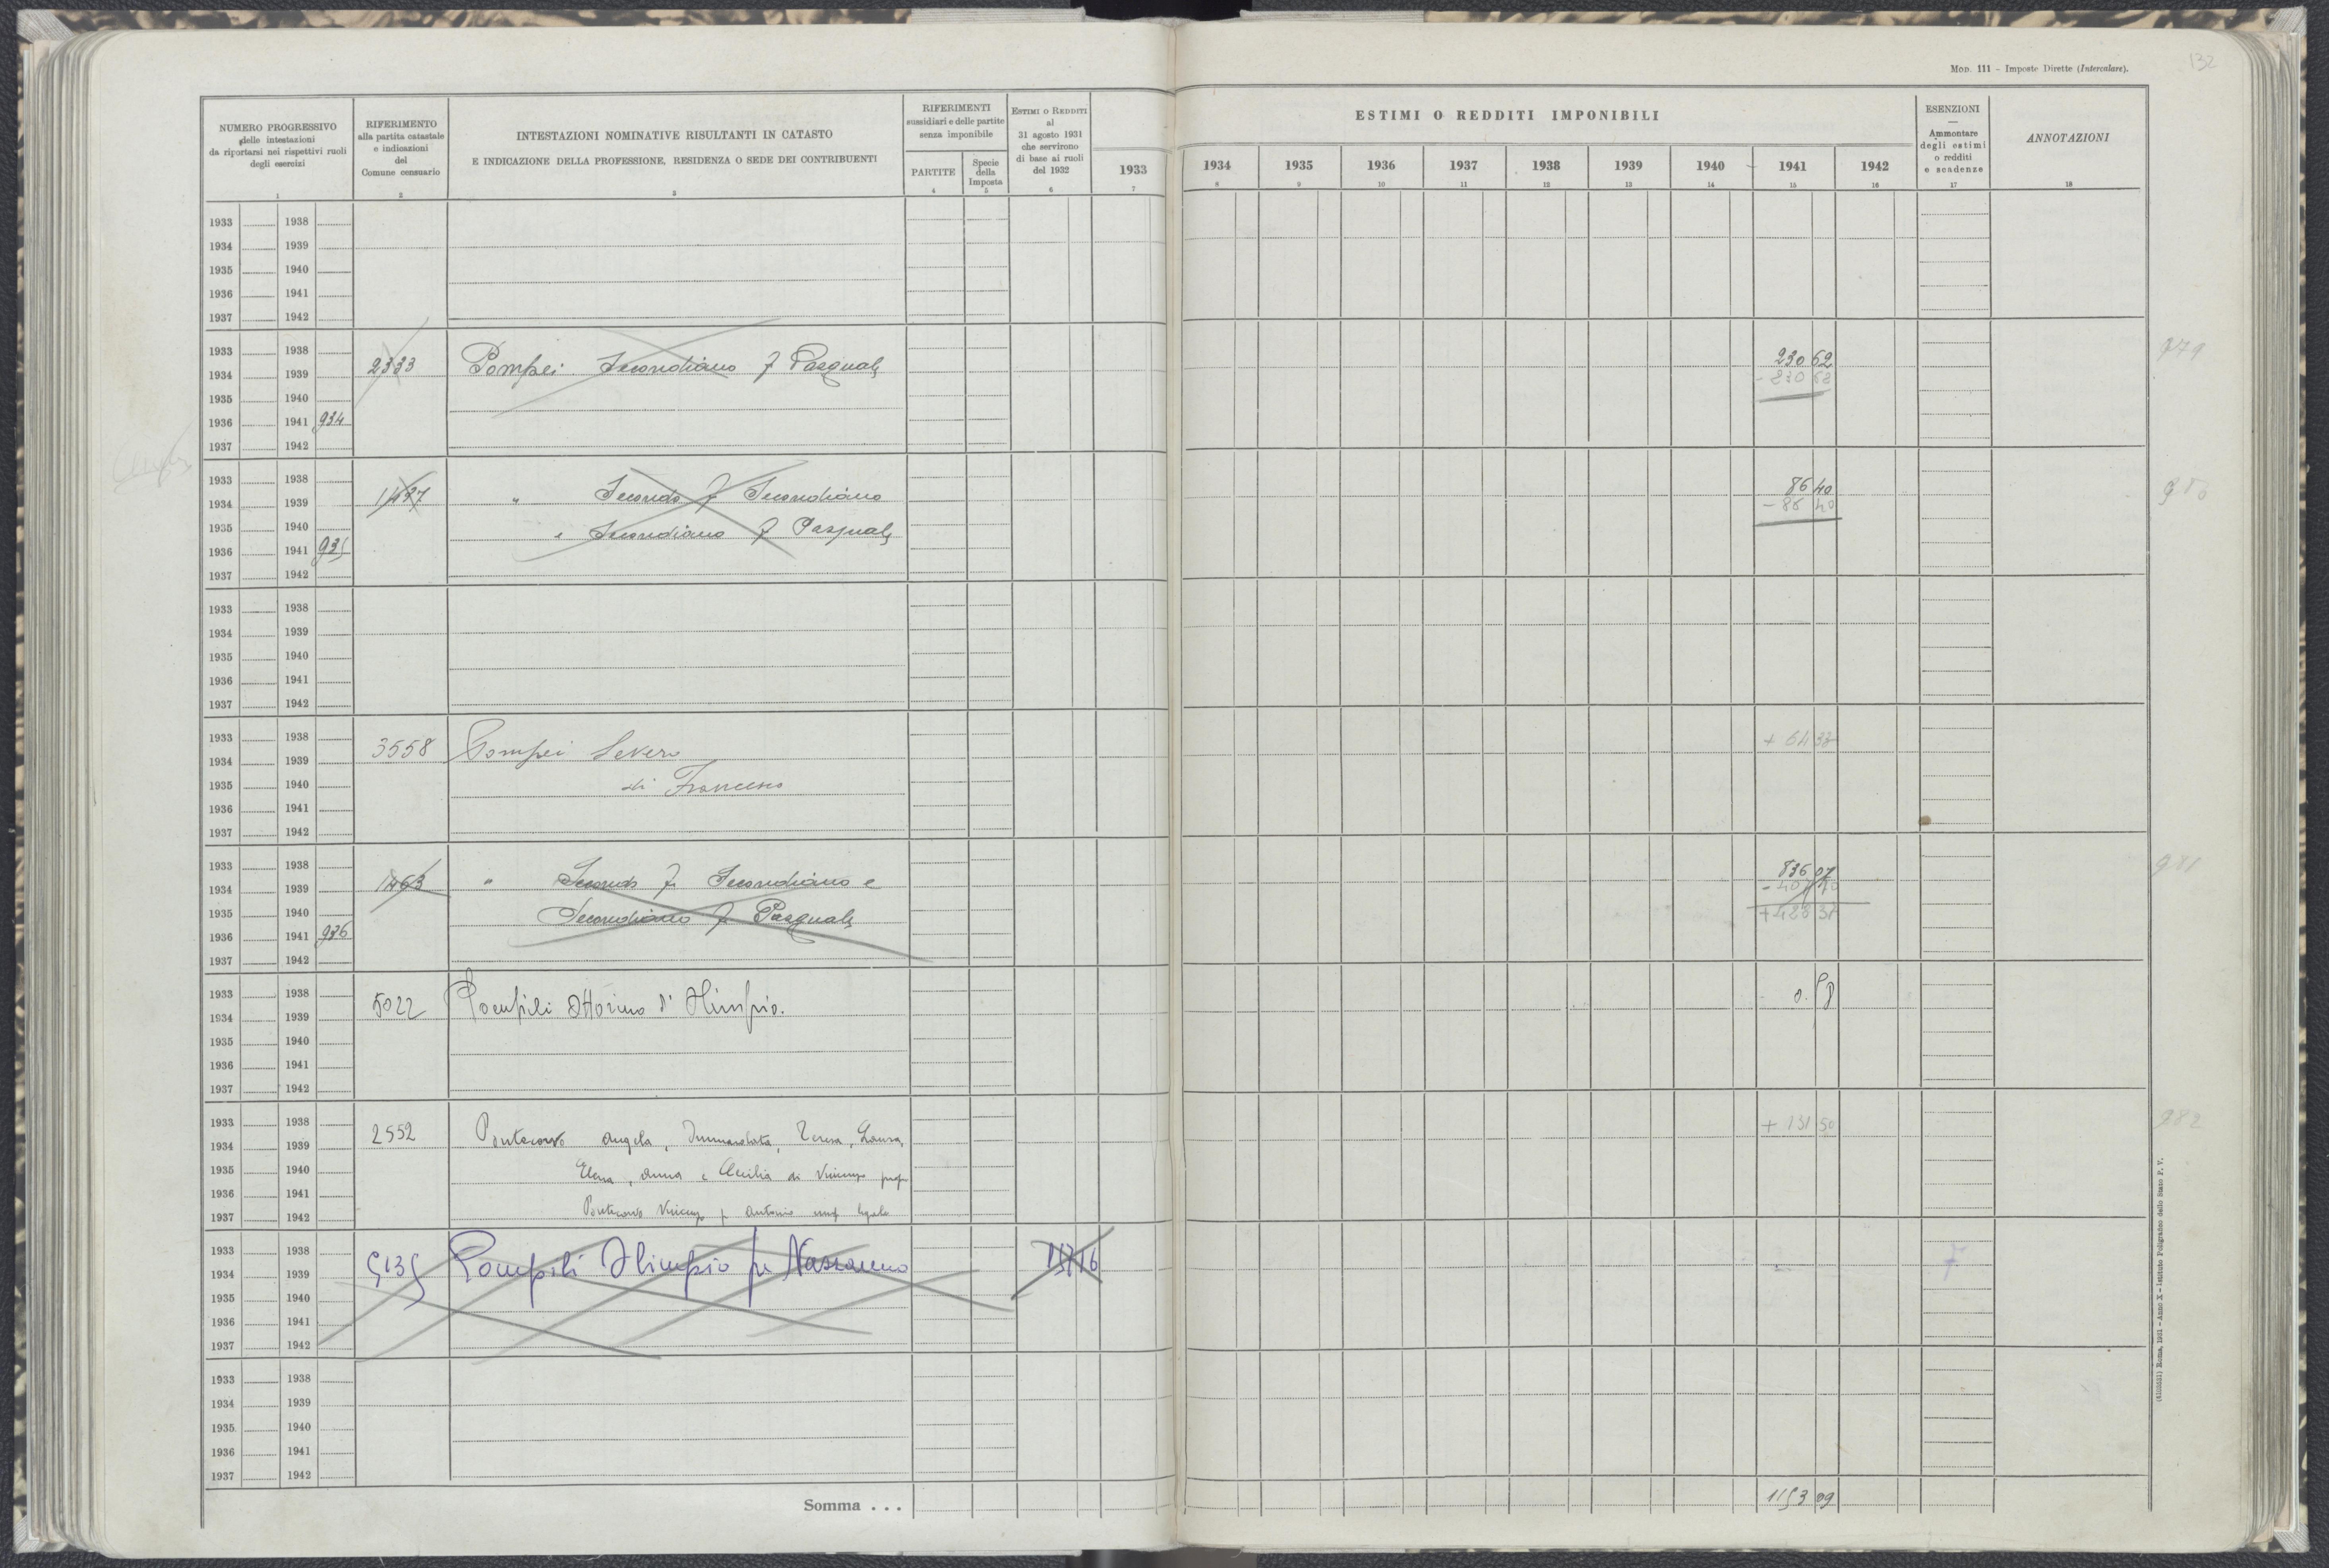 132
MOD. 111 – Imposte Dirette (Intercalare).
NUMERO PROGRESSIVO
delle intestazioni
da riportarsi nei rispettivi ruoli
degli esercizi
1
RIFERIMENTO
alla partita catastale
e indicazioni
del
Comune censuario
2
INTESTAZIONI NOMINATIVE RISULTANTI IN CATASTO
E INDICAZIONE DELLA PROFESSIONE, RESIDENZA O SEDE DEI CONTRIBUENTI
3
RIFERIMENTI
sussidiari e delle partite
senza imponibile
PARTITE
4
Specie
della
Imposta
5
ESTIMI O REDDITI
al
31 agosto 1931
che servirono
di base ai ruoli
del 1932
6
1933
7
ESTIMI O REDDITI IMPONIBILI
1934 1935 1936 1937 1938 1939 1940 1941 1942
8 9 10 11 12 13 14 15 16
ESENZIONI
—
Ammontare
degli estimi
o redditi
e scadenze
17
ANNOTAZIONI
18
1933 1938
1934 1939
1935 1940
1936 1941
1937 1942
1933 1938
2333 Pompei Secondiano f Pasquale 230 62 979
1934 1939
- 230 62
1935 1940
1936 1941 934
1937 1942
1933 1938
1437 " Secondo f Secondiano 86 40 980
1934 1939
- 86 40
1935 1940
e Secondiano f Pasquale
1936 1941 935
1937 1942
1933 1938
1934 1939
1935 1940
1936 1941
1937 1942
1933 1938
3558 Pompei Severo + 64 33
1934 1939
di Francesco
1935 1940
1936 1941
1937 1942
1933 1938
1463 " Secondo fu Secondiano e 836 07 981
1934 1939
- 407 70
1935 1940
Secondiano f Pasquale + 428 37
1936 1941 936
1937 1942
1933 1938
5022 Pompili Ottorino di Olimpio. 0.58
1934 1939
1935 1940
1936 1941
1937 1942
1933 1938
2552 Pontecorvo Angela, Immacolata, Teresa, Laura, + 131 50 982
1934 1939
1935 1940
Elena, Anna e Cecilia di Vincenzo prop
1936 1941
1937 1942
Pontecorvo Vincenzo f Antonio usuf legale
1933 1938
5135 Pompili Olimpio fu Nazzareno
1934 1939
1935 1940
1936 1941
1937 1942
1933 1938
1934 1939
1935 1940
1936 1941
1937 1942
Somma . . . 1153 09
(4103531) Roma, 1931 – Anno X – Istituto Poligrafico dello Stato P. V.